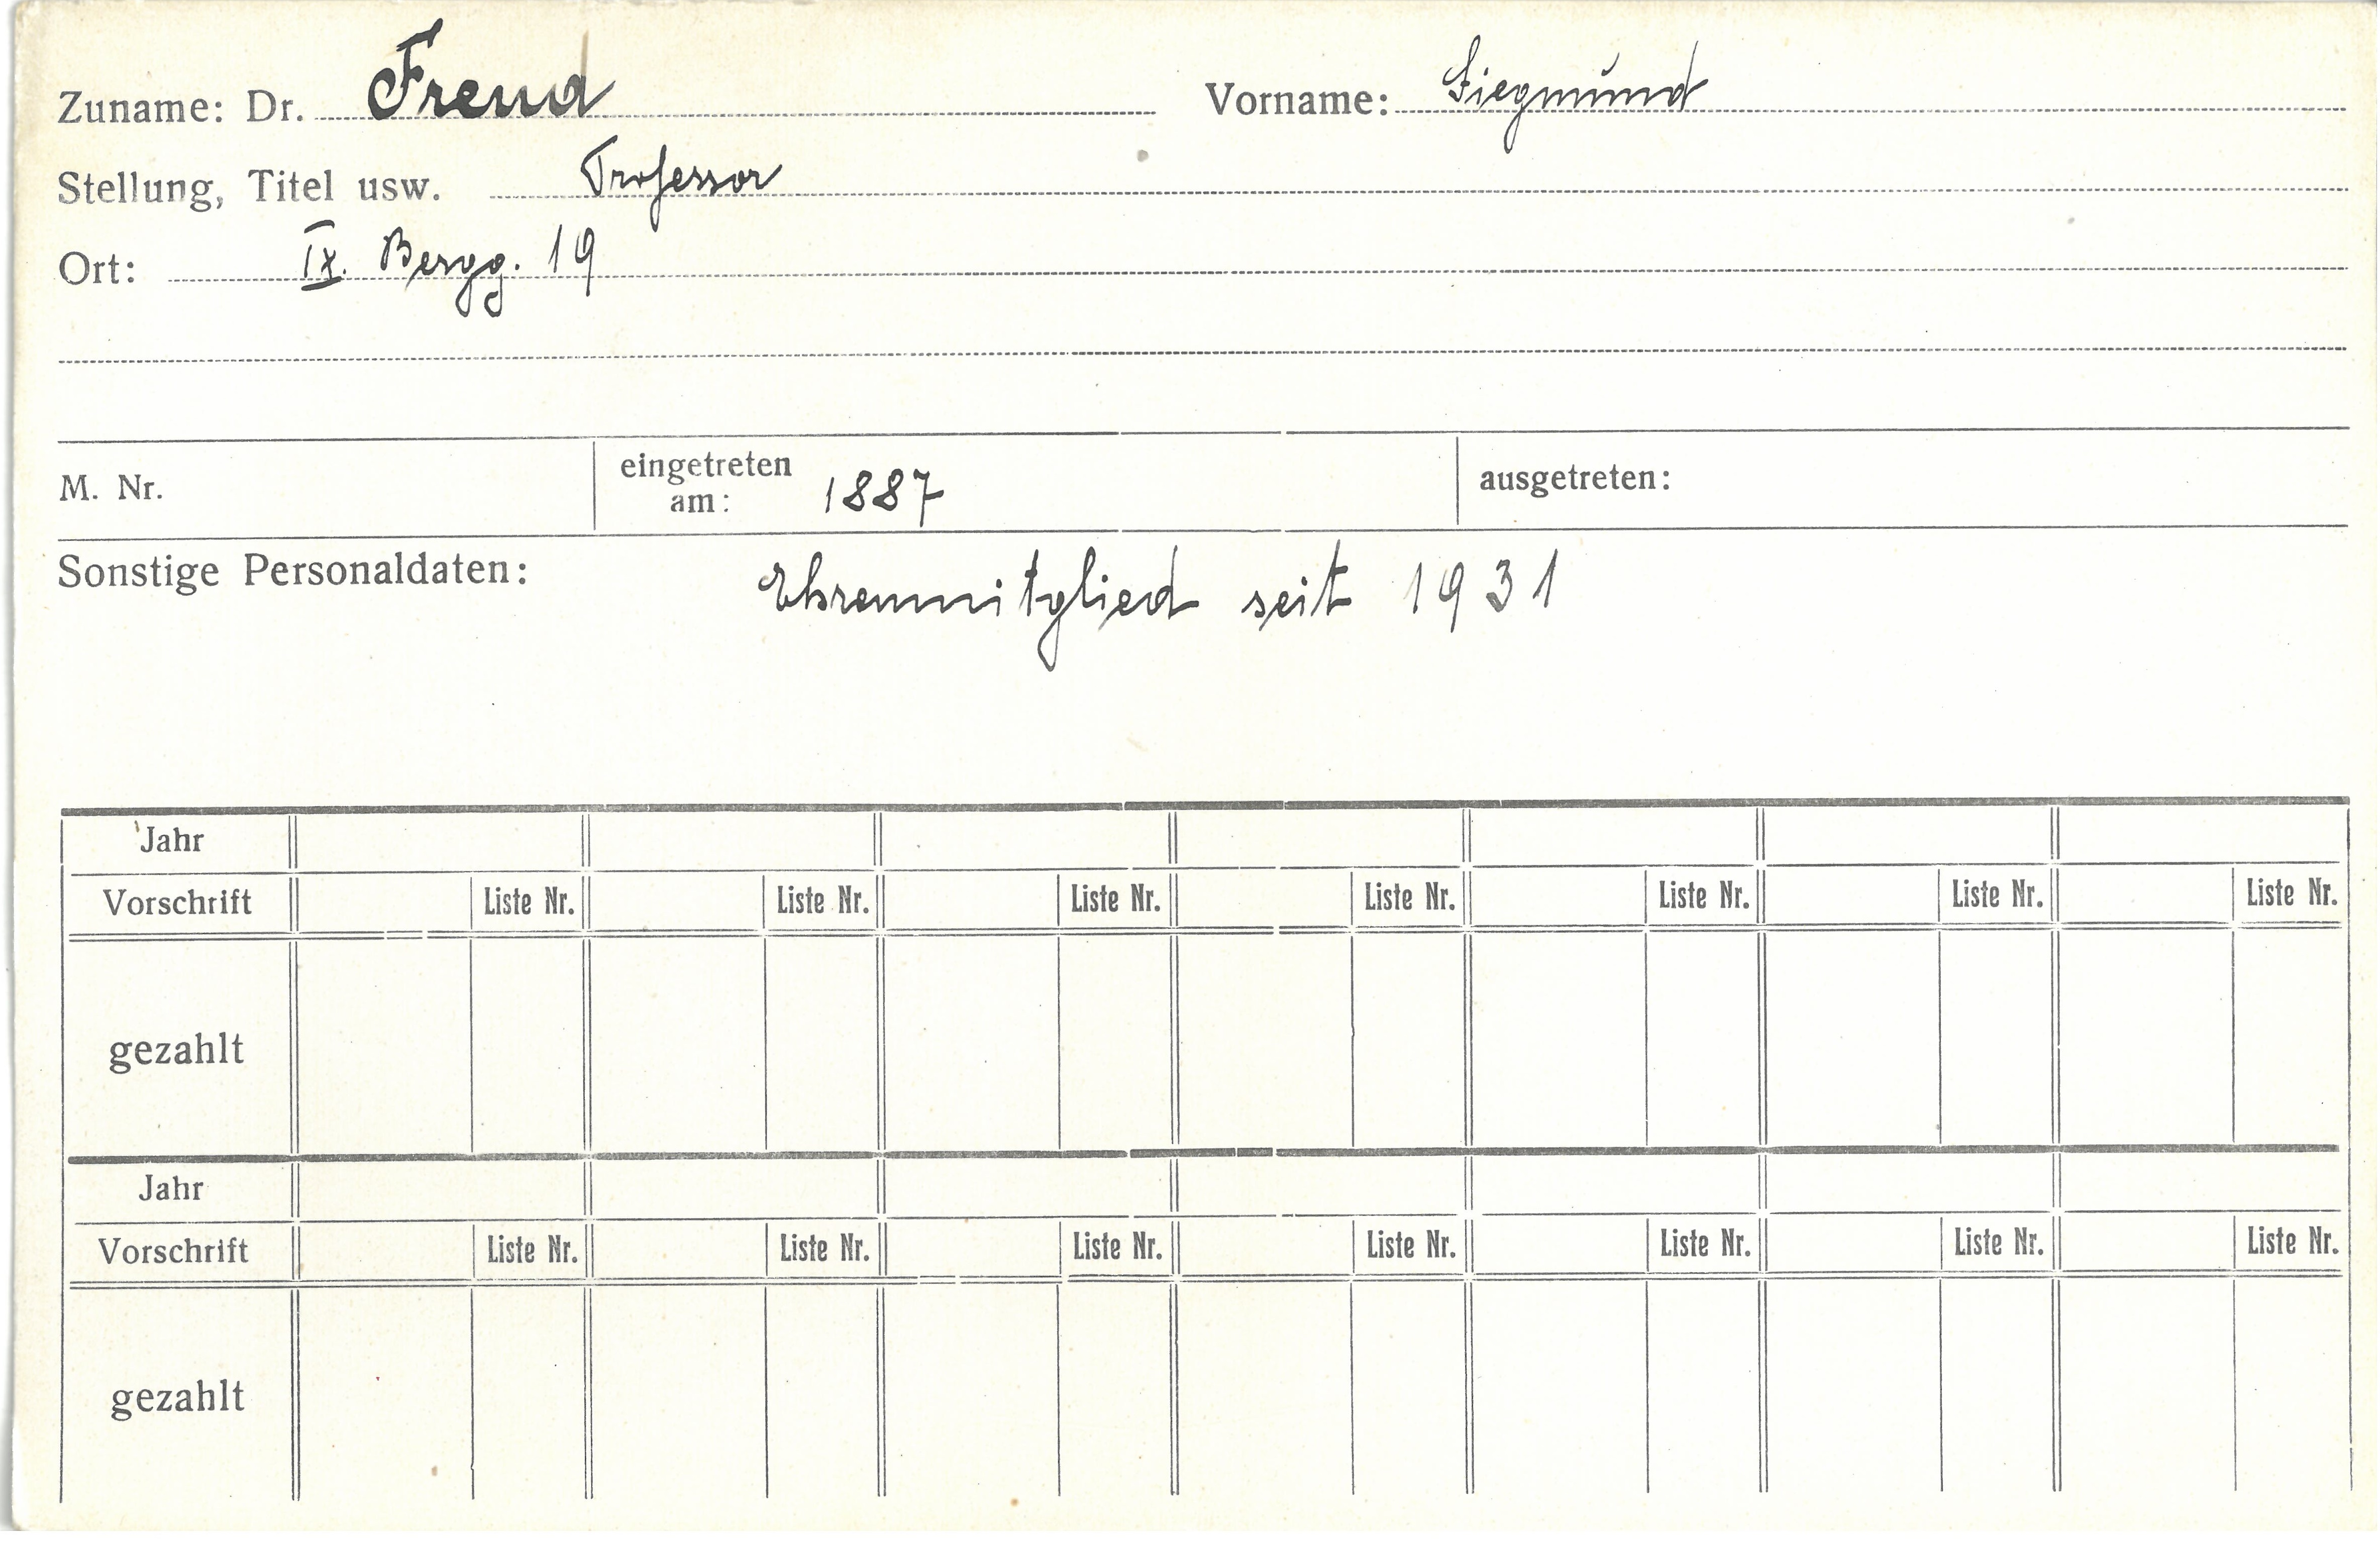 Zuname: Dr. Freud Vorname: Siegmund
Stellung, Titel usw. Professor
Ort: IX. Bergg. 19
M. Nr. eingetreten am: 1887 ausgetreten:
Sonstige Personaldaten: Ehrenmitglied seit 1931
Jahr
Vorschrift Liste Nr. Liste Nr. Liste Nr. Liste Nr. Liste Nr. Liste Nr. Liste Nr.
gezahlt
Jahr
Vorschrift Liste Nr. Liste Nr. Liste Nr. Liste Nr. Liste Nr. Liste Nr. Liste Nr.
gezahlt